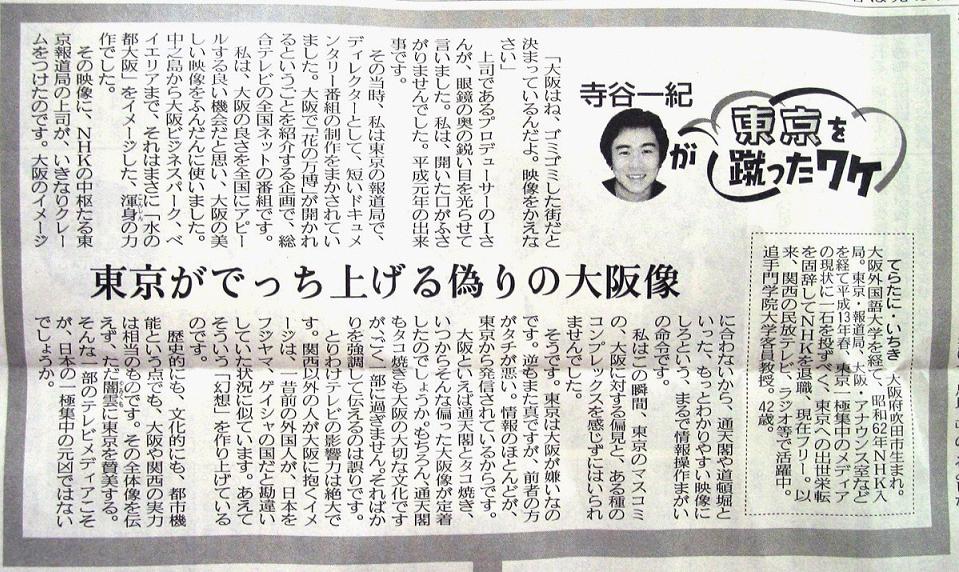 寺谷一紀
が
東京を
蹴ったワケ
てらたに・いちき 大阪府吹田市生まれ。
大阪外国語大学を経て、昭和62年NHK入
局。東京・報道局、大阪・アナウンス室など
を経て平成13年春、東京一極集中のメディア
の現状に一石を投ずべく、東京への出世栄転
を固辞してNHKを退職、現在フリー。以
来、関西の民放テレビ、ラジオ等で活躍中。
追手門学院大学客員教授。42歳。
「大阪はね、ゴミゴミした街だと
決まっているんだよ。映像をかえな
さい」
上司であるプロデューサーのIさ
んが、眼鏡の奥の鋭い目を光らせて
言いました。私は、開いた口がふさ
がりませんでした。平成元年の出来
事です。
その当時、私は東京の報道局で、
ディレクターとして、短いドキュメ
ンタリー番組の制作をまかされてい
ました。大阪で「花の万博」が開かれ
るということを紹介する企画で、総
合テレビの全国ネットの番組です。
私は、大阪の良さを全国にアピー
ルする良い機会だと思い、大阪の美
しい映像をふんだんに使いました。
中之島から大阪ビジネスパーク、ベ
イエリアまで、それはまさに「水の
都大阪」をイメージした、渾身の力
作でした。
その映像に、NHKの中枢たる東
京報道局の上司が、いきなりクレー
ムをつけたのです。大阪のイメージ
東京がでっち上げる偽りの大阪像
に合わないから、通天閣や道頓堀と
いった、もっとわかりやすい映像に
しろという、まるで情報操作まがい
の命令です。
私はこの瞬間、東京のマスコミ
の、大阪に対する偏見と、ある種の
コンプレックスを感じずにはいられ
ませんでした。
そうです。東京は大阪が嫌いなの
です。逆もまた真ですが、前者の方
がタチが悪い。情報のほとんどが、
東京から発信されているからです。
大阪といえば通天閣とタコ焼き、
いつからそんな偏った大阪像が定着
したのでしょうか。もちろん、通天閣
もタコ焼きも大阪の大切な文化です
が、ごく一部に過ぎません。そればか
りを強調して伝えるのは誤りです。
とりわけテレビの影響力は絶大で
す。関西以外の人が大阪に抱くイメ
ージは、一昔前の外国人が、日本を
フジヤマ、ゲイシャの国だと勘違い
していた状況に似ています。あえて
そういう「幻想」を作り上げている
のです。
歴史的にも、文化的にも、都市機
能という点でも、大阪や関西の実力
は相当のものです。その全体像を伝
えず、ただ闇雲に東京を賛美する。
そんな、一部のテレビメディアこそ
が、日本の一極集中の元凶ではない
でしょうか。